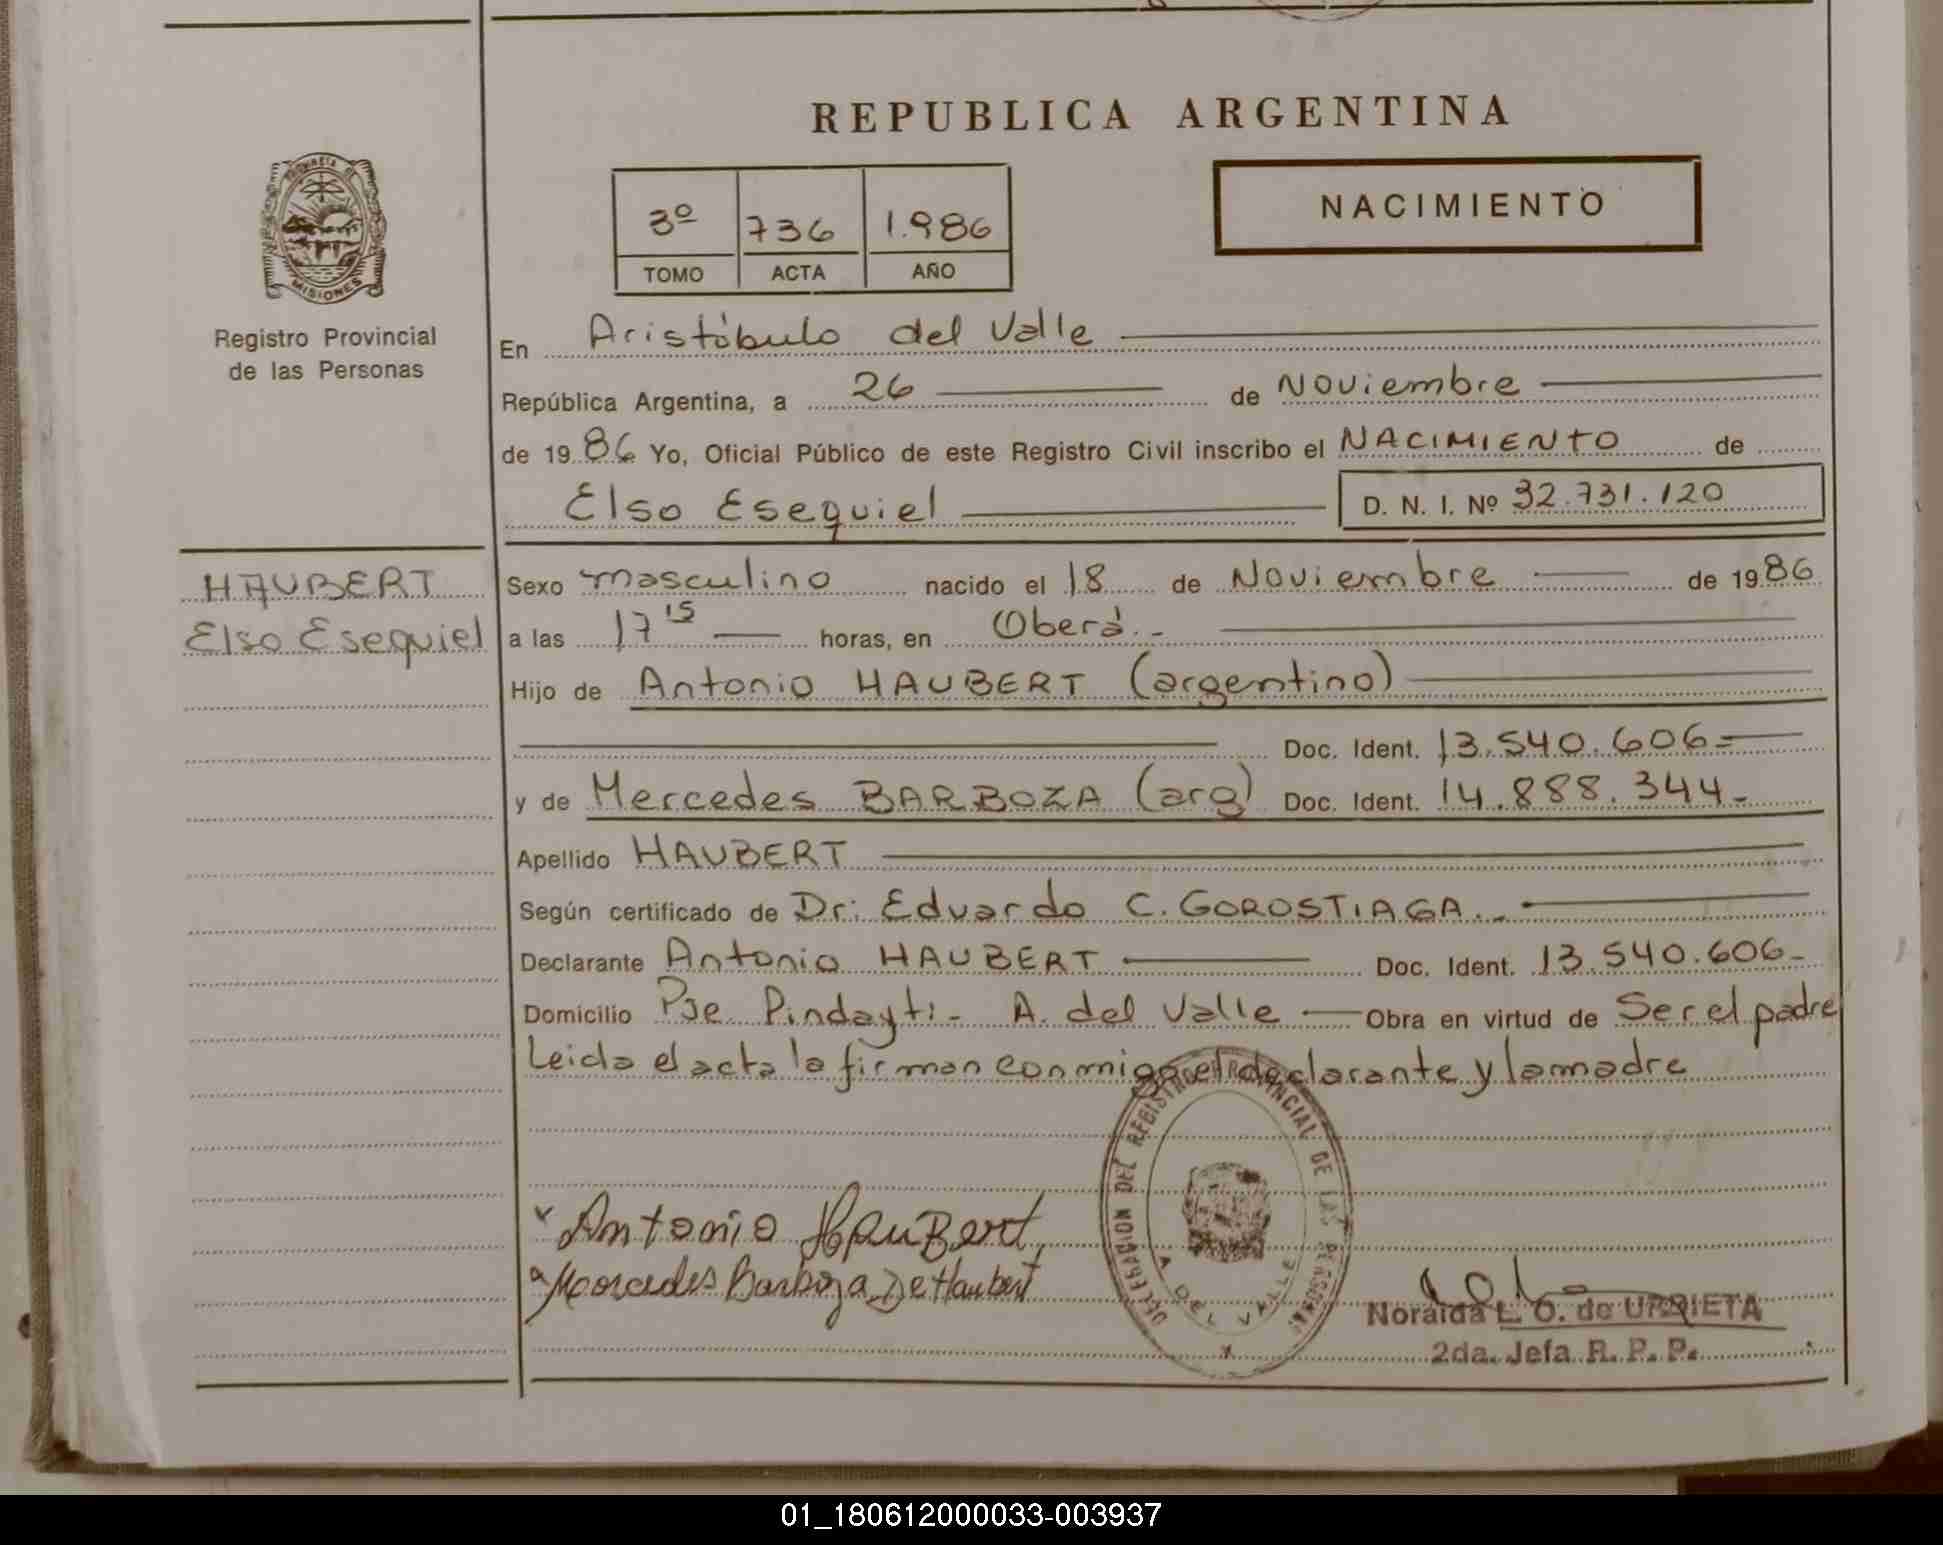 REPUBLICA ARGENTINA
NACIMIENTO
3º 736 1.986
TOMO ACTA AÑO
MISIONES
Registro Provincial
de las Personas
En Aristóbulo del Valle
República Argentina, a 26 de Noviembre
de 19 86 Yo, Oficial Público de este Registro Civil inscribo el NACIMIENTO de
Elso Esequiel D. N. I. Nº 32.731.120
HAUBERT
Elso Esequiel
Sexo masculino nacido el 18 de Noviembre de 1986
a las 17 15 horas, en Oberá.-
Hijo de Antonio HAUBERT (argentino)
Doc. Ident. 13.540.606=
y de Mercedes BARBOZA (arg) Doc. Ident. 14.888.344-
Apellido HAUBERT
Según certificado de Dr: Eduardo C. GOROSTIAGA.-
Declarante Antonio HAUBERT Doc. Ident. 13.540.606-
Domicilio Pje Pindayti- A. del Valle Obra en virtud de Ser el padre
Leida el acta la firman conmigo el declarante y la madre
Antonio Haubert
Mercedes Barboza De Haubert
DELEGACION DEL REGISTRO PROVINCIAL DE LAS PERSONAS
A. DEL VALLE
Noraida L. O. de URRIETA
2da. Jefa R. P. P.
01_180612000033-003937